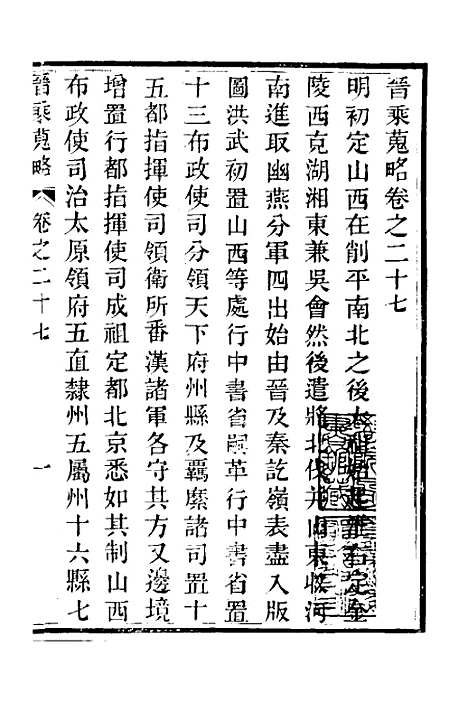 晉乘蒐略卷之二十七
明初定山西在削平南北之後太祖起淮右定金
陵西克湖湘東兼吳會然後遣將北伐并山東收河
南進取幽燕分軍四出始由晉及秦訖嶺表盡入版
圖洪武初置山西等處行中書省嗣革行中書省置
十三布政使司分領天下府州縣及羈縻諸司置十
五都指揮使司領衛所番漢諸軍各守其方又邊境
增置行都指揮使司成祖定都北京悉如其制山西
布政使司治太原領府五直隸州五屬州十六縣七
晉乘蒐略 卷之二十七 一